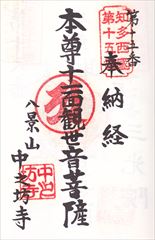 第十五番
奉納経
本尊十一面観世音菩薩
八景山
中之坊寺
知多西国
第十五
中之坊寺